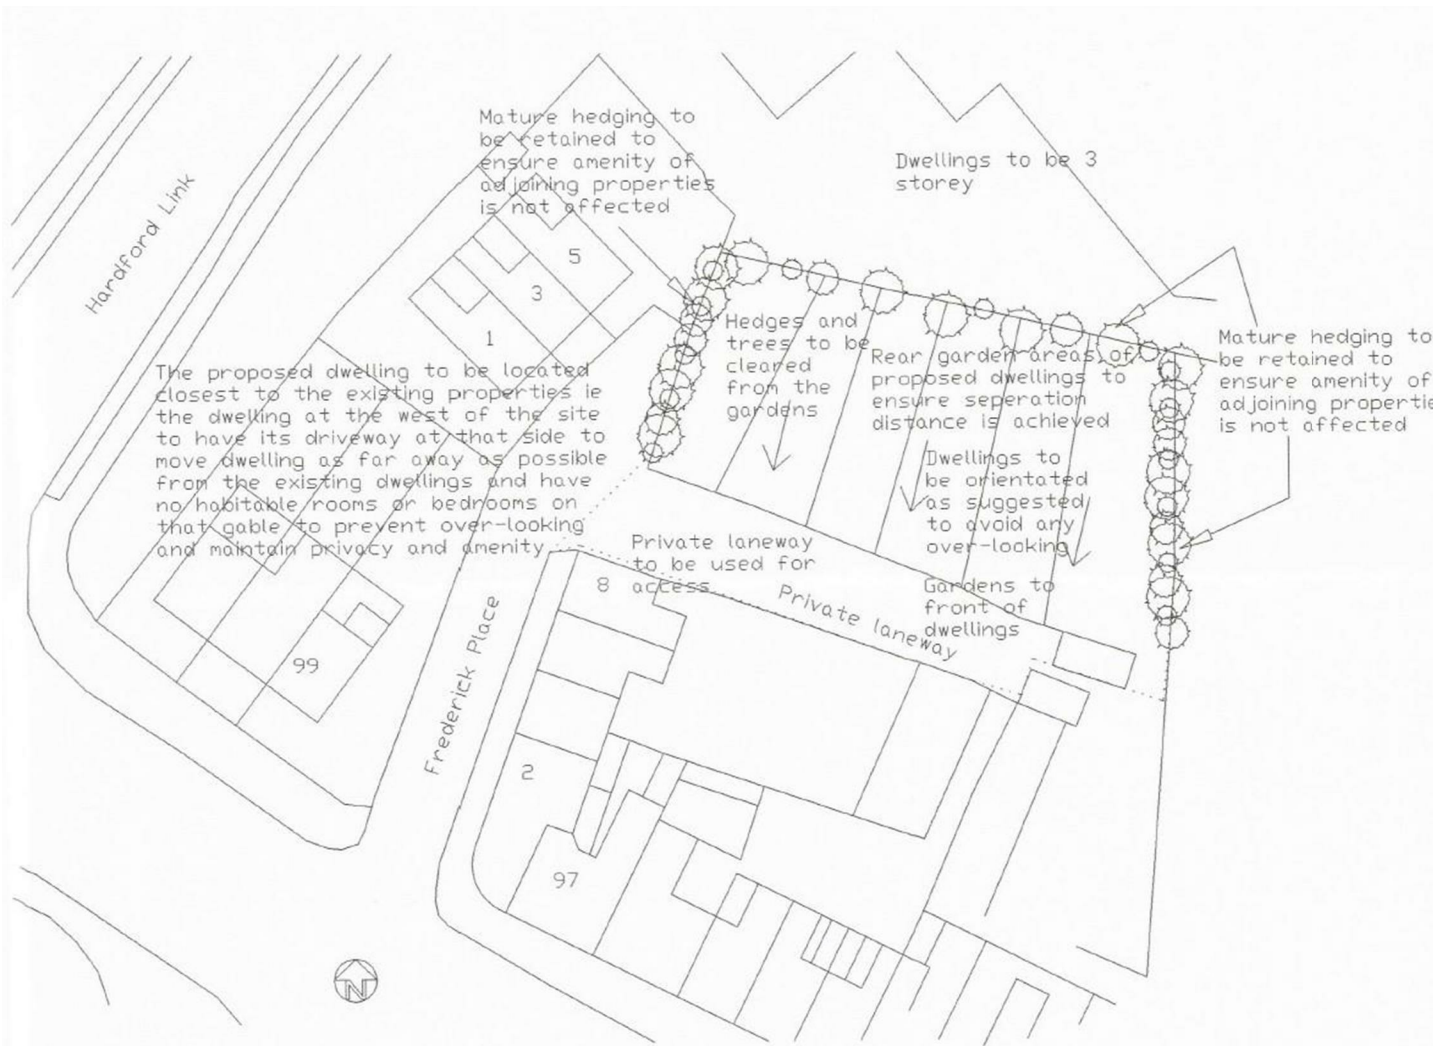 Mature hedging to
be retained to
ensure amenity of
adjoining properties
is not affected
Dwellings to be 3
storey
Hardford Link
5
3
1
Hedges and
trees to be
cleared
from the
gardens
Rear garden areas of
proposed dwellings to
ensure seperation
distance is achieved
Mature hedging to
be retained to
ensure amenity of
adjoining propertie
is not affected
The proposed dwelling to be located
closest to the existing properties ie
the dwelling at the west of the site
to have its driveway at that side to
move dwelling as far away as possible
from the existing dwellings and have
no habitable rooms or bedrooms on
that gable to prevent over-looking
and maintain privacy and amenity
Dwellings to
be orientated
as suggested
to avoid any
over-looking
Private laneway
to be used for
access
8
Private laneway
Gardens to
front of
dwellings
99
Frederick Place
2
97
N